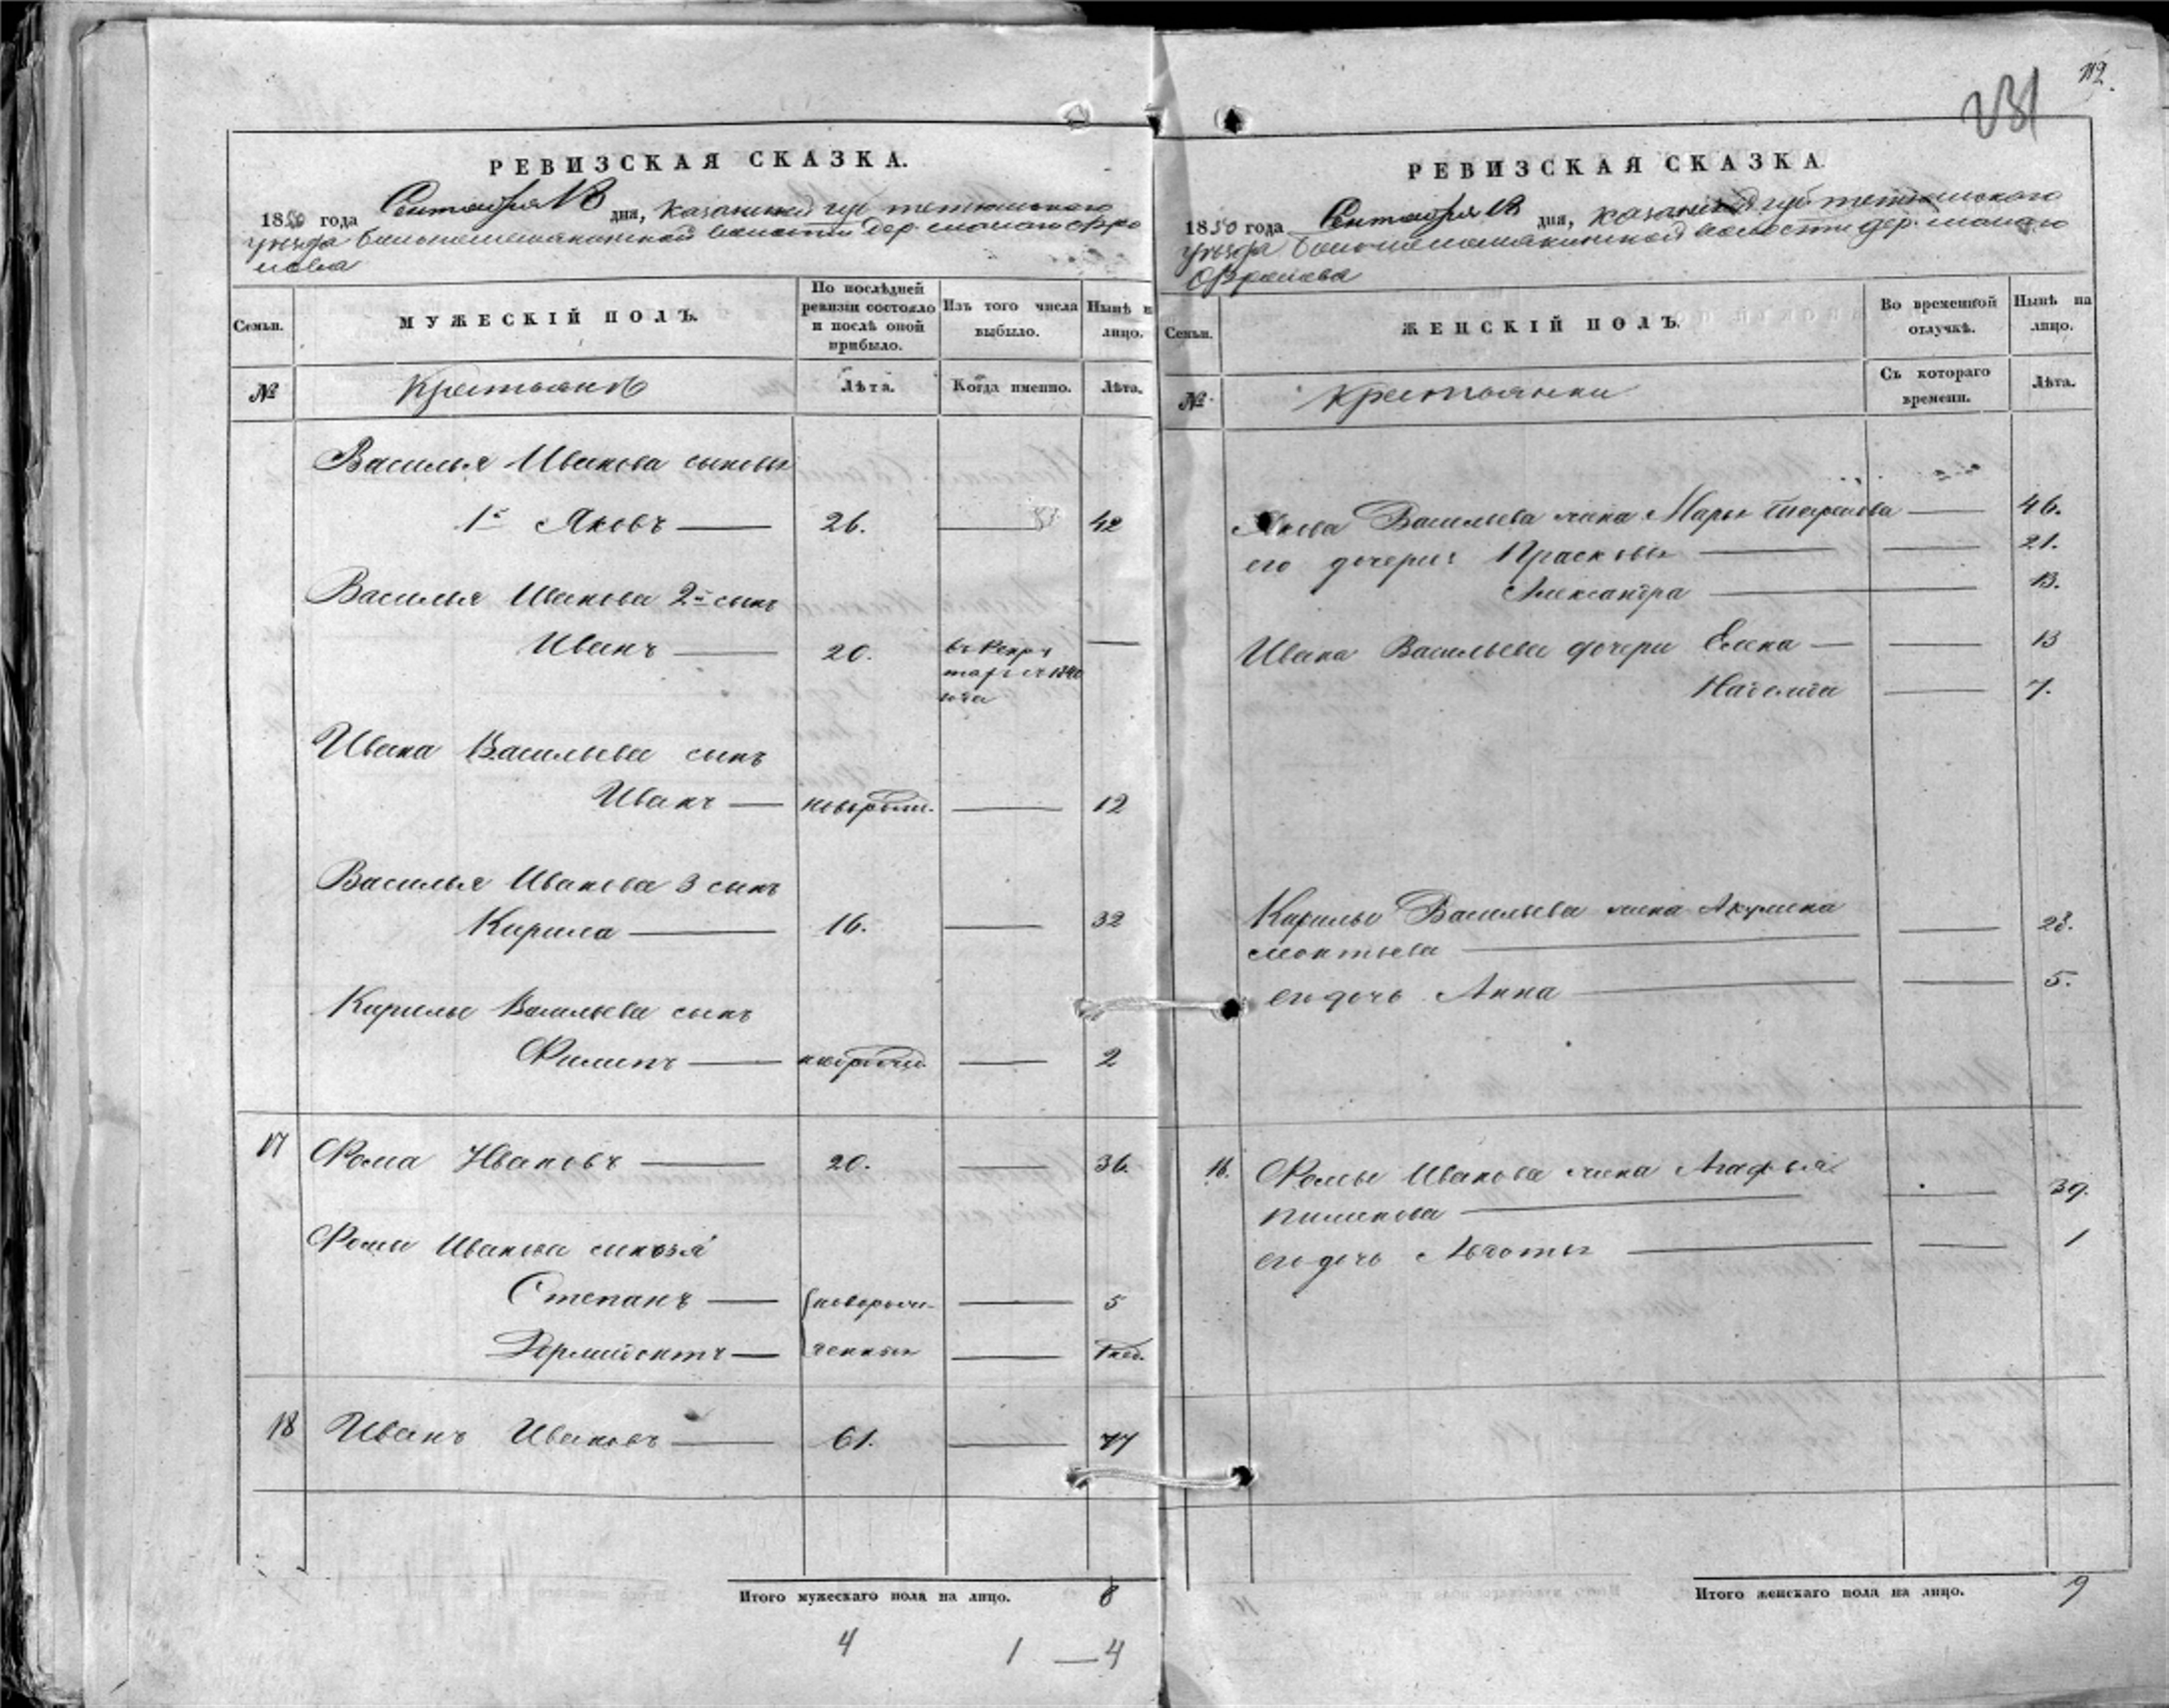 112.
231
РЕВИЗСКАЯ СКАЗКА.
1850 года Сентября 18 дня, Казанской губ тетюшского
уѣзда волости дер.
РЕВИЗСКАЯ СКАЗКА.
1850 года Сентября 18 дня, Казанской губ тетюшского
уѣзда волости дер.
Семьи.
МУЖЕСКІЙ ПОЛЪ.
По послѣдней
ревизіи состояло
и послѣ оной
прибыло.
Изъ того числа
выбыло.
Нынѣ н
лицо.
№
Крестьянъ
Лѣта.
Когда именно.
Лѣта.
Василья Иванова сыновья
1й Яковъ — 26. — 42
Василья Иванова 2й сынъ
Иванъ — 20. въ рекр 1840 года —
Ивана Васильева сынъ
Иванъ — новорожд. — 12
Василья Иванова 3 сынъ
Кирила — 16. — 32
Кирилы Васильева сынъ
Филипъ — новорожд. — 2
17 Фома Ивановъ — 20. — 36
Фомы Иванова сыновья
Степанъ — новорож- — 5
— денные — 1 нед.
18 Иванъ Ивановъ — 61. — 77
Итого мужескаго пола на лицо. 8
4 1 — 4
Семьи.
ЖЕНСКІЙ ПОЛЪ.
Во временной
отлучкѣ.
Нынѣ на
лицо.
№
Крестьянки
Съ котораго
времени.
Лѣта.
Якова Васильева жена Марья — 46.
его дочери: Прасковья — — 21.
Александра — 13.
Ивана Васильева дочери Елена — — 13
— 7.
Кирилы Васильева жена Акулина
леонтьева — — 28.
его дочь Анна — — 5.
16. Фомы Иванова жена Агафья
— — 39.
его дочь — — 1
Итого женскаго пола на лицо. 9